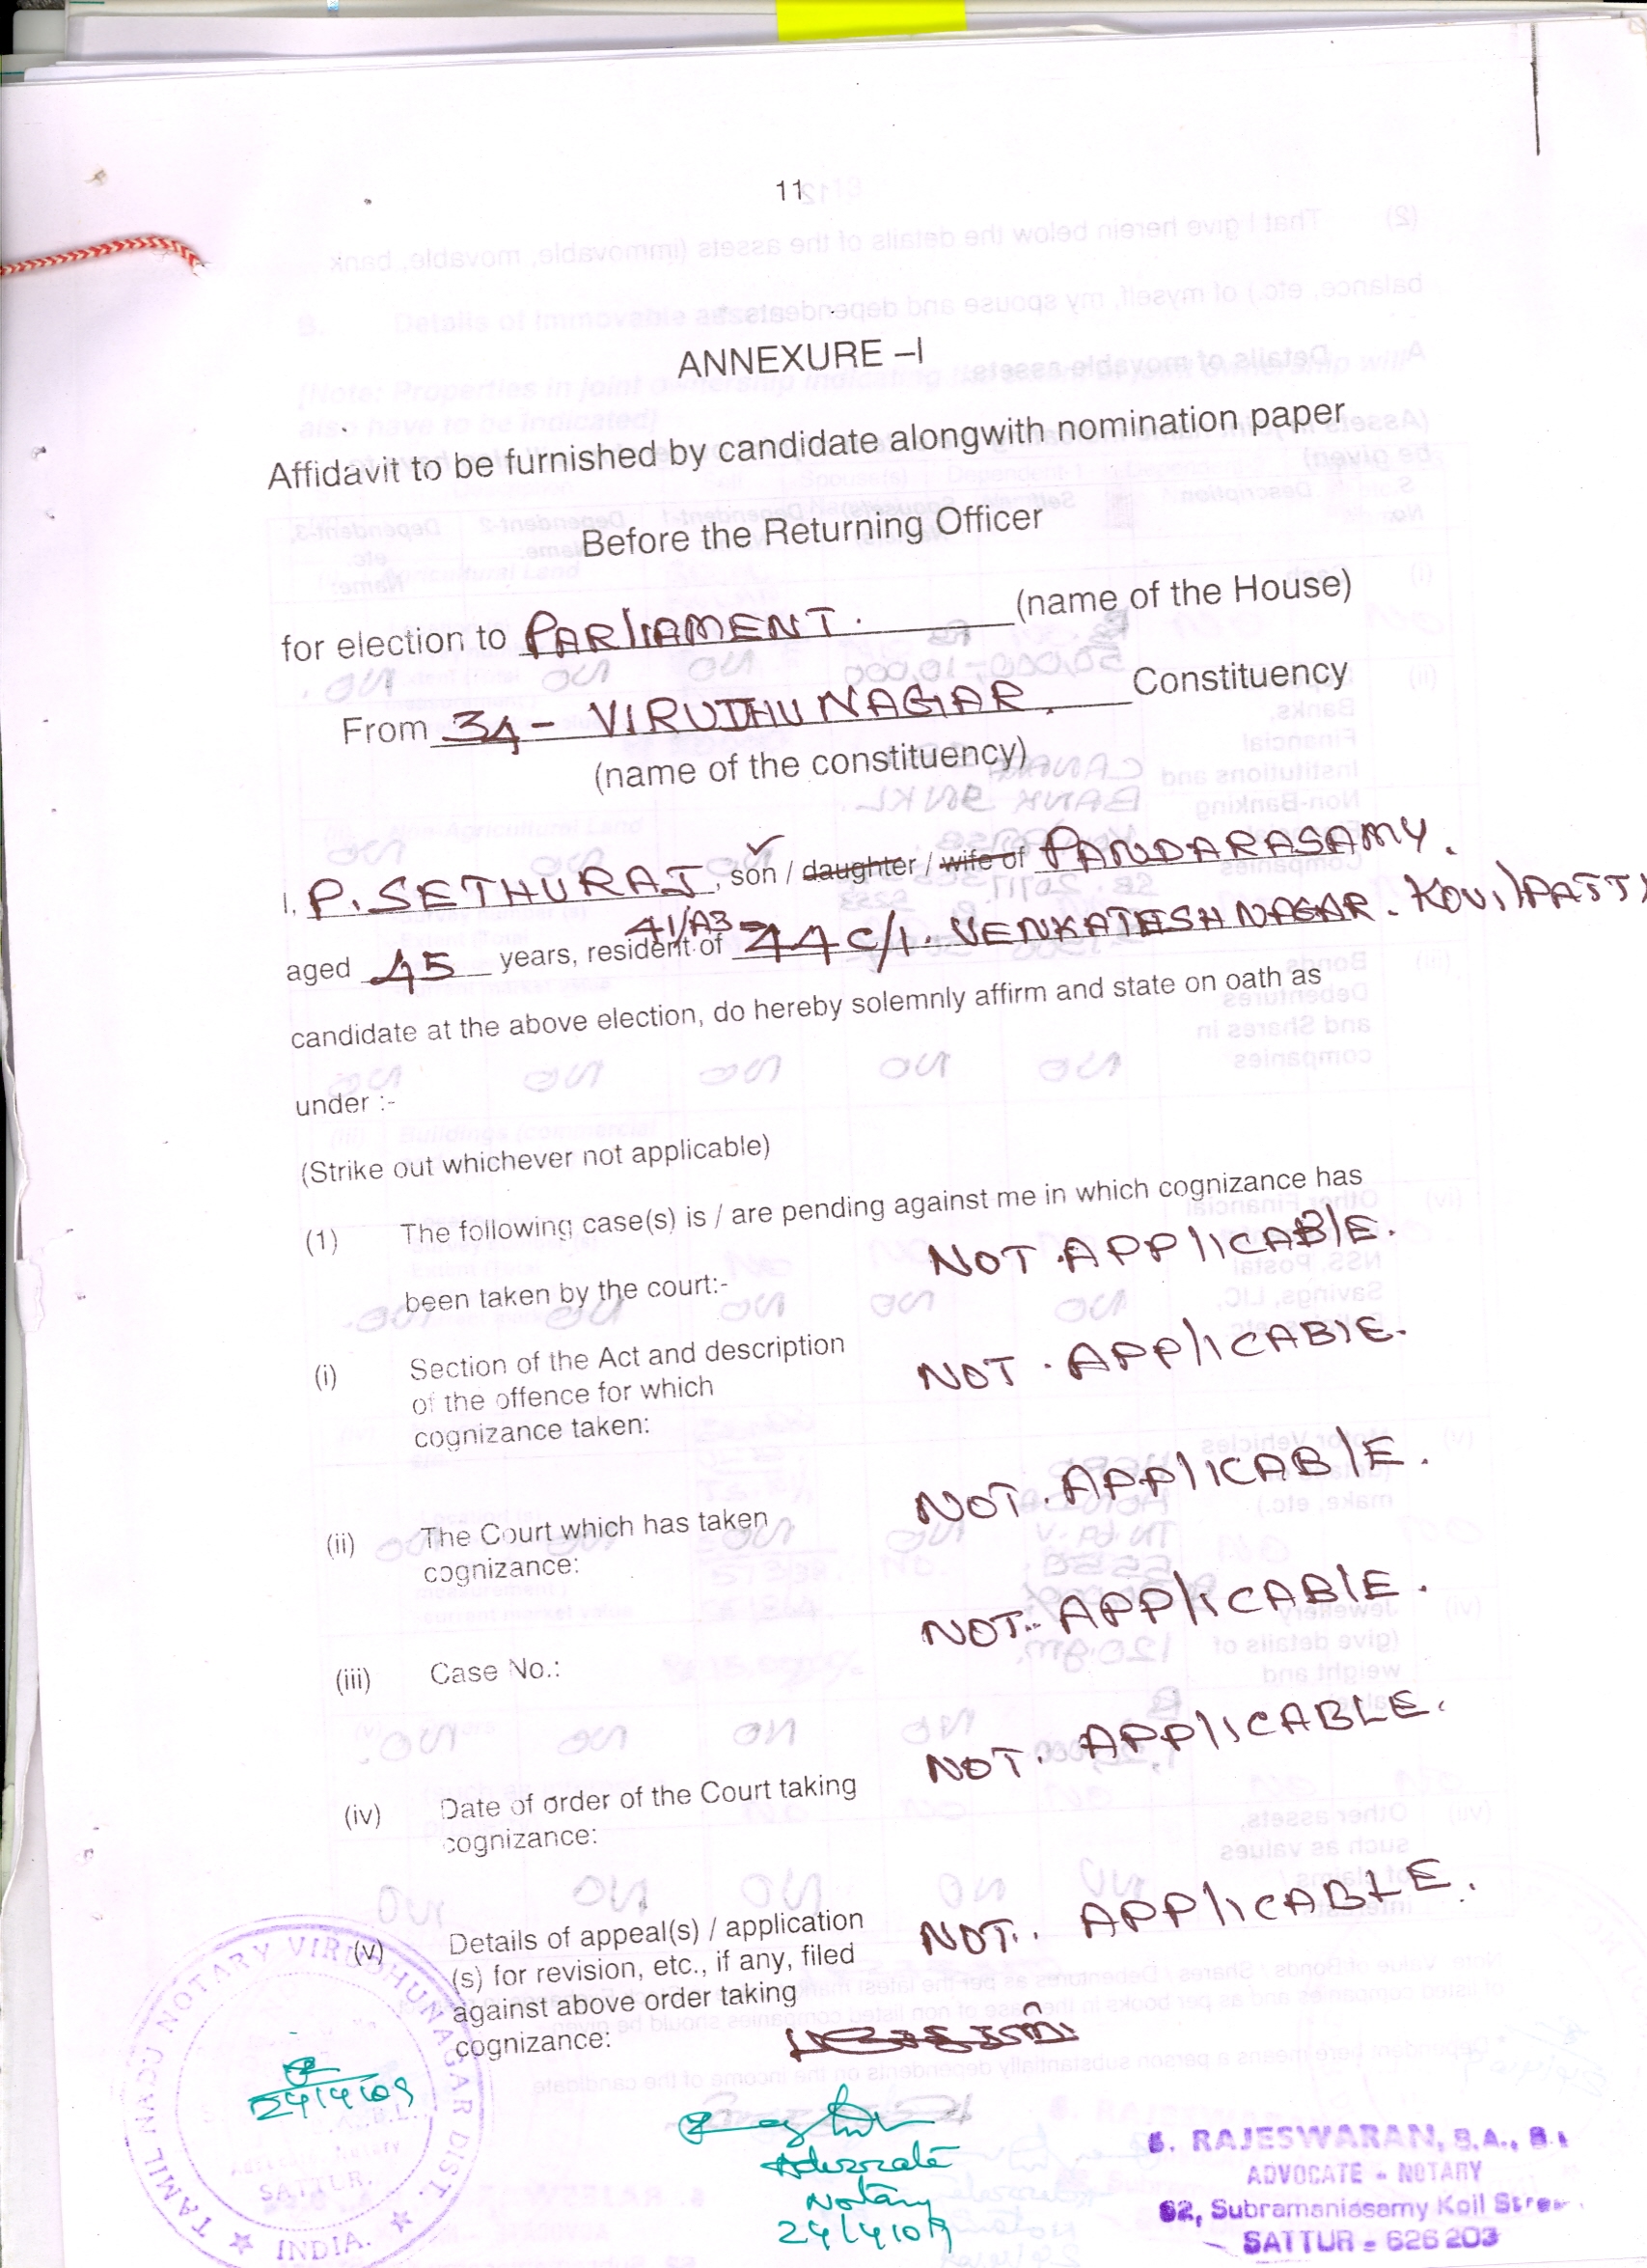 11
ANNEXURE –I
Affidavit to be furnished by candidate alongwith nomination paper
Before the Returning Officer
for election to PARlIAMENT. (name of the House)
From 34 - VIRUTHUNAGAR. Constituency
(name of the constituency)
I. P. SETHURAJ, son / daughter / wife of PANDARASAMY.
aged 45 years, resident of 41/A3 44 C/1. VENKATESH NAGAR. KOVIlPATTI
candidate at the above election, do hereby solemnly affirm and state on oath as
under :-
(Strike out whichever not applicable)
(1) The following case(s) is / are pending against me in which cognizance has
been taken by the court:- NOT APPlICABlE.
(i) Section of the Act and description NOT. APPlICABlE.
of the offence for which
cognizance taken:
(ii) The Court which has taken NOT. APPlICABlE.
cognizance:
(iii) Case No.: NOT. APPlICABlE.
(iv) Date of order of the Court taking NOT. APPlICABLE.
cognizance:
(v) Details of appeal(s) / application NOT.. APPlICABLE.
(s) for revision, etc., if any, filed
against above order taking
cognizance:
24/4/09
Advocate
Notary
24/4/09
TAMIL NADU NOTARY VIRUDHUNAGAR DIST.
SATTUR.
INDIA.
S. RAJESWARAN, B.A.,
ADVOCATE - NOTARY
62, Subramaniasamy Koil Street
SATTUR - 626 203